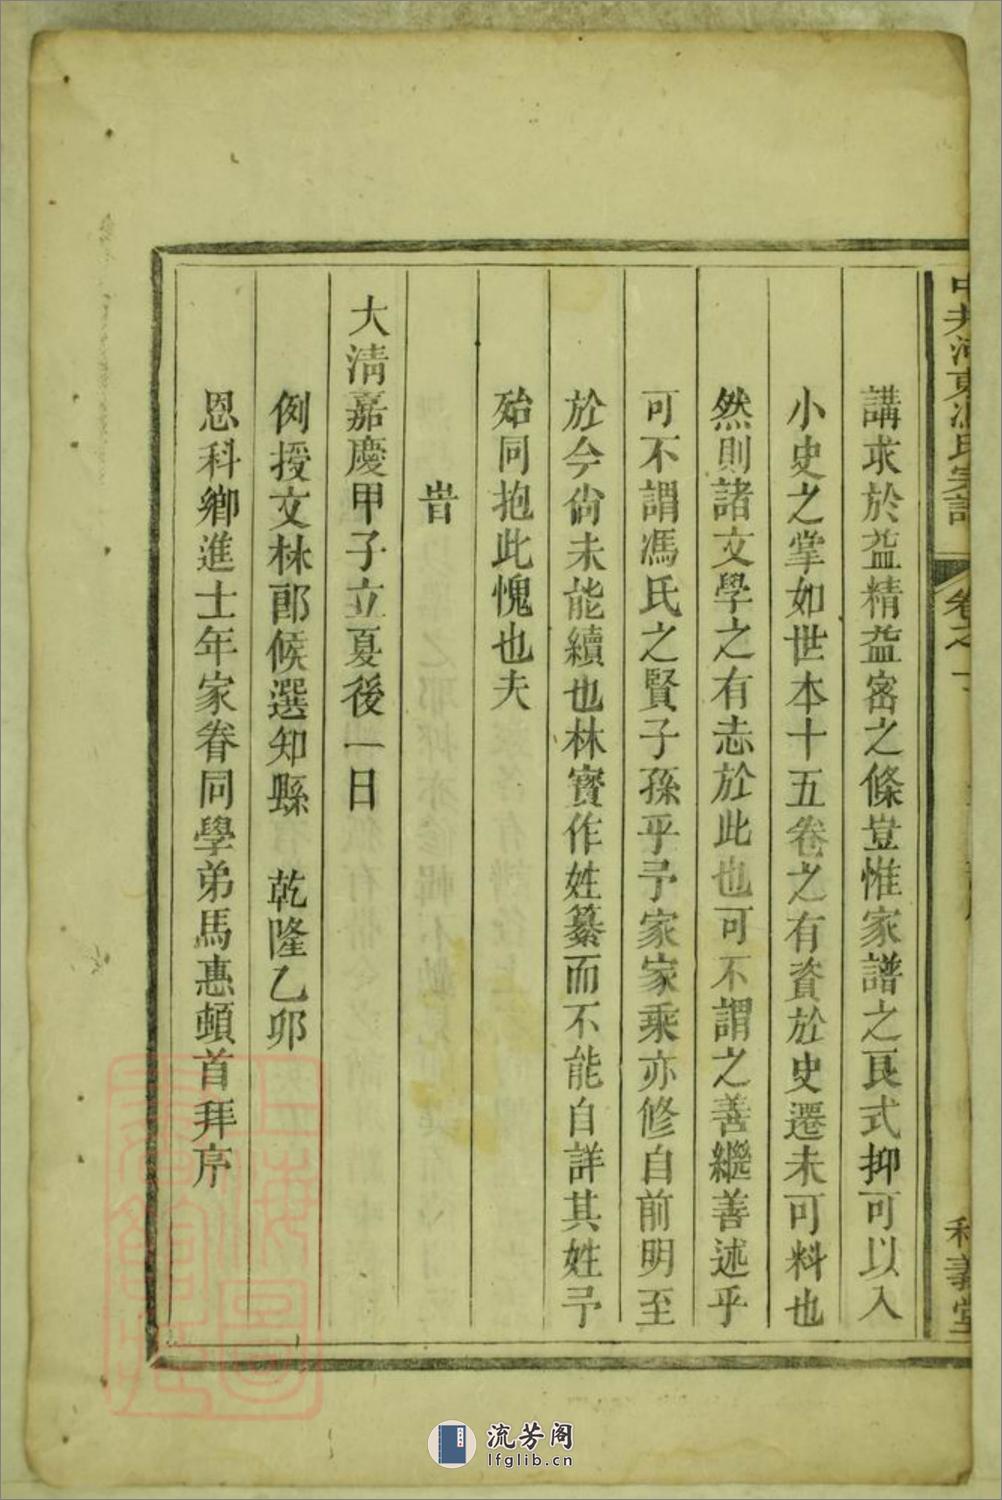 講求於益精益密之條豈惟家譜之良式抑可以入
小史之掌如世本十五卷之有資於史遷未可料也
然則諸文學之有志於此也可不謂之善繼善述乎
可不謂馮氏之賢子孫乎予家家乘亦修自前明至
於今尙未能續也林寳作姓纂而不能自詳其姓予
殆同抱此愧也夫
旹
大淸嘉慶甲子立夏後一日
例授文林郎候選知縣 乾隆乙卯
恩科鄉進士年家眷同學弟馬惠頓首拜序
河東馮氏宗譜
卷之一
義堂
上海圖書館藏
流芳阁
lfglib.cn